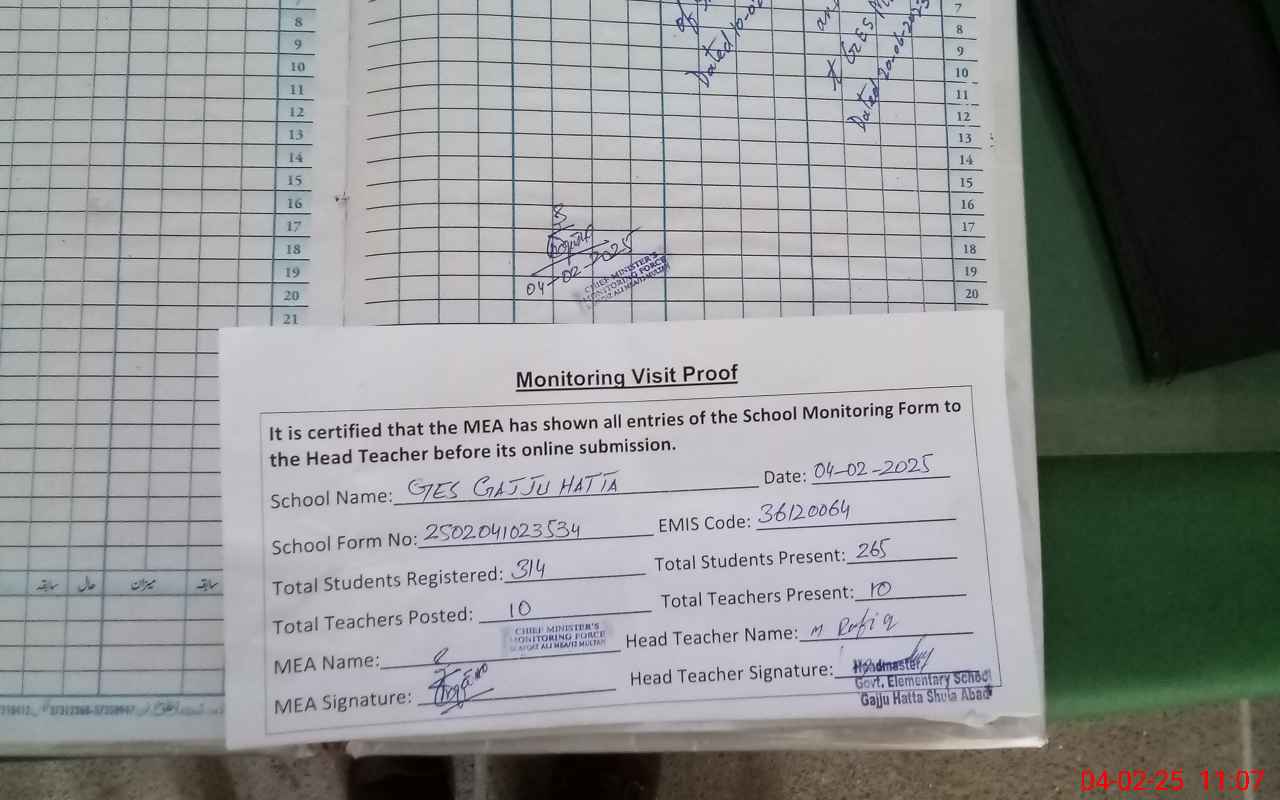 7
8
9
10
11
12
13
14
15
16
17
18
19
20
21
Dated 10-0
Dated 20-06-2023
7
8
9
10
11
12
13
14
15
16
17
18
19
20
04-02-2025
CHIEF MINISTER'S
MONITORING FORCE
Monitoring Visit Proof
It is certified that the MEA has shown all entries of the School Monitoring Form to
the Head Teacher before its online submission.
School Name: GES GAJJU HATTA Date: 04-02-2025
School Form No: 2502041023534 EMIS Code: 36120064
Total Students Registered: 314 Total Students Present: 265
Total Teachers Posted: 10 Total Teachers Present: 10
CHIEF MINISTER'S
MONITORING FORCE
MEA Name: Head Teacher Name: M Rafiq
MEA Signature: Head Teacher Signature:
Headmaster
Govt. Elementary School
Gajju Hatta Shuja Abad
سابقہ حال میزان سابقہ
04-02-25 11:07